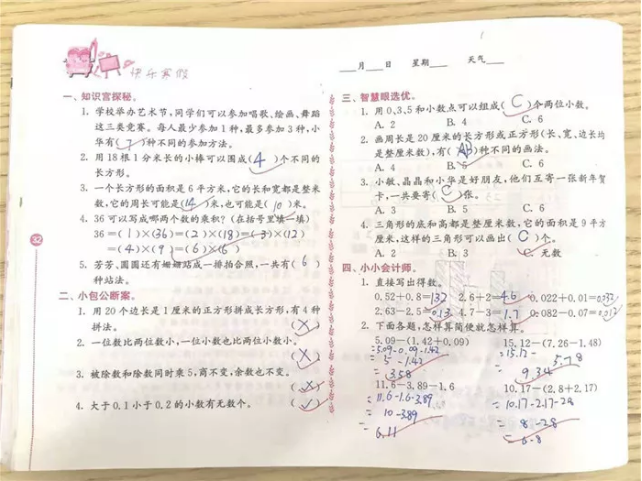 快乐寒假
月 日 星期 天气
一、知识宫探秘。
1. 学校举办艺术节,同学们可以参加唱歌、绘画、舞蹈
这三类竞赛。每人最少参加1种,最多参加3种,小
华有(7)种不同的参加方法。
2. 用18根1分米长的小棒可以围成(4)个不同的
长方形。
3. 一个长方形的面积是6平方米,它的长和宽都是整米
数,它的周长可能是(14)米,也可能是(10)米。
4. 36可以写成哪两个数的乘积?(在括号里填一填)
36=(1)×(36)=(2)×(18)=(3)×(12)
=(4)×(9)=(6)×(6)
5. 芳芳、圆圆还有姗姗站成一排拍合照,一共有(6)
种站法。
二、小包公断案。
1. 用20个边长是1厘米的正方形拼成长方形,有4种
拼法。 (×)
2. 一位数比两位数小,一位小数也比两位小数小。
(×)
3. 被除数和除数同时乘5,商不变,余数也不变。
(×)
4. 大于0.1小于0.2的小数有无数个。 (√)
32
三、智慧眼选优。
1. 用0、3、5和小数点可以组成(C)个两位小数。
A. 2 B. 4 C. 6
2. 画周长是20厘米的长方形或正方形(长、宽、边长均
是整厘米数),有( )种不同的画法。
A. 4 B. 5 C. 6
3. 小敏、晶晶和小华是好朋友,他们互寄一张新年贺
卡,一共要寄(C)张。
A. 3 B. 5 C. 6
4. 三角形的底和高都是整厘米数,它的面积是9平方
厘米,这样的三角形可以画出(C)个。
A. 2 B. 3 C. 无数
四、小小会计师。
1. 直接写出得数。
0.52+0.8=1.32 2.6+2=4.6 0.022+0.01=0.032
2.63-2.5=0.13 4.7-3=1.7 0.082-0.07=0.012
2. 下面各题,怎样算简便就怎样算。
5.09-(1.42+0.09) 15.12-(7.26-1.48)
=5.09-0.09-1.42 =15.12-
=5-1.42 5.78
=3.58 =9.34
11.6-3.89-1.6 10.17-(2.8+2.17)
=11.6-1.6-3.89 =10.17-2.17-2.8
=10-3.89 =8-2.8
6.11